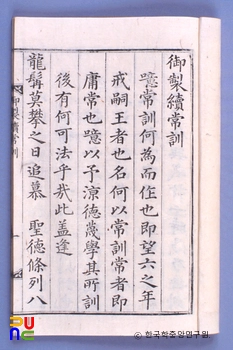 御製續常訓
噫常訓何為而作也即望六之年
戒嗣王者也名何以常訓常者即
庸常也噫以予涼德蔑學其所訓
後有何可法乎哉此盖逢
龍髯莫攀之日追慕 聖德條列八
御製續常訓
PUNC
한국학중앙연구원